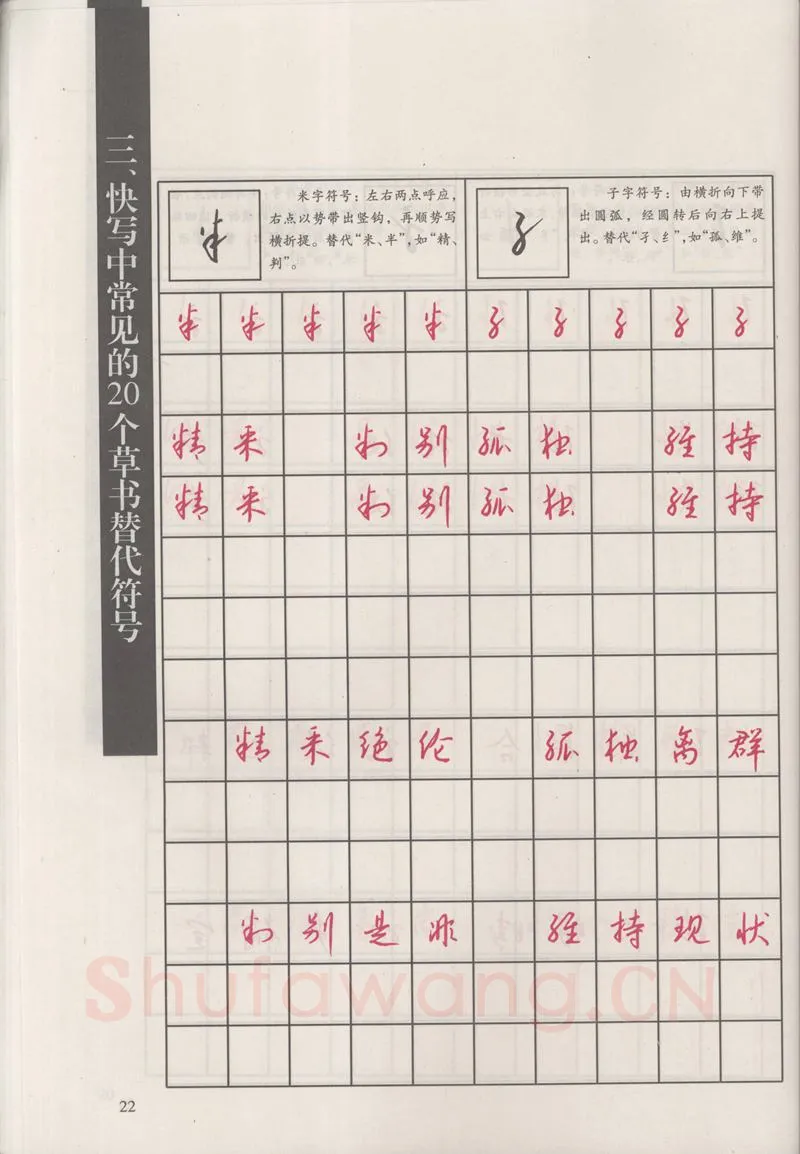 三、快写中常见的20个草书替代符号
米字符号：左右两点呼应，
右点以势带出竖钩，再顺势写
横折提。替代“米、半”，如“精、
判”。
子字符号：由横折向下带
出圆弧，经圆转后向右上提
出。替代“孑、纟”，如“孤、维”。
精采 判别孤独 维持
精采 判别孤独 维持
精采绝伦 孤独离群
判别是非 维持现状
Shufawang.CN
22